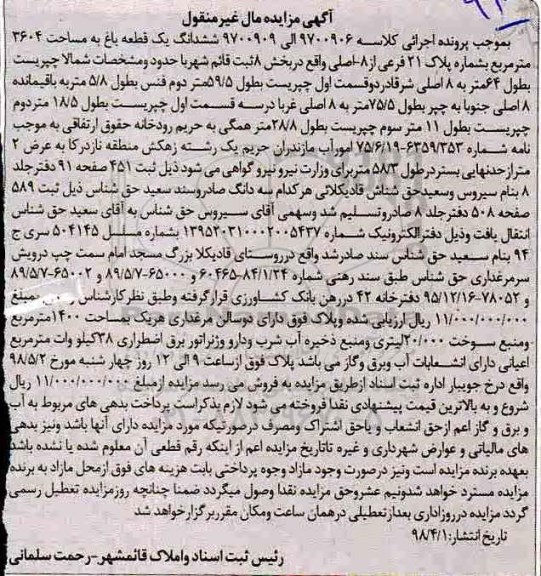 آگهی مزایده مال غیرمنقول
بموجب پرونده اجرائی کلاسه ۹۷۰۰۹۰۶ الی ۹۷۰۰۹۰۹ ششدانگ یک قطعه باغ به مساحت ۳۶۰۴
مترمربع بشماره پلاک ۲۱ فرعی از ۸-اصلی واقع دربخش ۸ ثبت قائم شهربا حدود ومشخصات شمالا چپریست
بطول ۶۴متر به ۸ اصلی شرقادردوقسمت اول چپریست بطول ۵۹/۵متر دوم فنس بطول ۵/۸ متربه باقیمانده
۸ اصلی جنوبا به چپر بطول ۷۵/۵متر به ۸ اصلی غربا درسه قسمت اول چپریست بطول ۱۸/۵ متردوم
چپریست بطول ۱۱ متر سوم چپریست بطول ۲۸/۸متر همگی به حریم رودخانه حقوق ارتفاقی به موجب
نامه شماره ۶۳۵۹/۳۵۳-۷۵/۶/۱۹ امورآب مازندران حریم یک رشته زهکش منطقه نازدرکا به عرض ۲
متراز‌حدنهایی بستردرطول ۵۸/۳ متربرای وزارت نیرو نیرو گواهی می شود ذیل ثبت ۴۵۱ صفحه ۹۱ دفترجلد
۸ بنام سیروس وسعیدحق شناس قادیکلائی هرکدام سه دانگ صادروسند سعید حق شناس ذیل ثبت ۵۸۹
صفحه ۵۰۸ دفترجلد ۸ صادروتسلیم شد وسهمی آقای سیروس حق شناس به آقای سعید حق شناس
انتقال یافت وذیل دفترالکترونیک شماره ۱۳۹۵۲۰۳۱۰۰۰۲۰۰۵۴۳۷ بشماره مسلسل ۵۰۴۱۴۵ سری ج
۹۴ بنام سعید حق شناس سند صادرشد واقع درروستای قادیکلا بزرگ مسجد امام سمت چپ درویش
سرمرغداری حق شناس طبق سند رهنی شماره ۸۴/۱/۲۴-۶۰۴۶۵ و ۶۵۰۰۰-۸۹/۵/۷ و ۶۵۰۰۲-۸۹/۵/۷
و ۷۸۰۵۲-۹۵/۱۲/۱۶ دفترخانه ۴۲ دررهن بانک کشاورزی قرارگرفته وطبق نظرکارشناس بمبلغ
۱۱/۰۰۰/۰۰۰/۰۰۰ ریال ارزیابی شده وپلاک فوق دارای دوسالن مرغداری هریک بمساحت ۱۴۰۰مترمربع
ومنبع سوخت ۲۰/۰۰۰لیتری ومنبع ذخیره آب شرب ودارو وژنراتور برق اضطراری ۳۸کیلو وات مترمربع
اعیانی دارای انشعابات آب وبرق وگاز می باشد پلاک فوق ازساعت ۹ الی ۱۲ روز چهار شنبه مورخ ۹۸/۵/۲
واقع درخ جویبار اداره ثبت اسناد ازطریق مزایده به فروش می رسد مزایده ازمبلغ ۱۱/۰۰۰/۰۰۰/۰۰۰ ریال
شروع و به بالاترین قیمت پیشنهادی نقدا فروخته می شود لازم بذکراست پرداخت بدهی های مربوط به آب
و برق و گاز اعم ازحق انشعاب و یاحق اشتراک ومصرف درصورتیکه مورد مزایده دارای آنها باشد ونیز بدهی
های مالیاتی و عوارض شهرداری و غیره تاتاریخ مزایده اعم از اینکه رقم قطعی آن معلوم شده یا نشده باشد
بعهده برنده مزایده است ونیز درصورت وجود مازاد وجوه پرداختی بابت هزینه های فوق ازمحل مازاد به برنده
مزایده مسترد خواهد شدونیم عشروحق مزایده نقدا وصول میگردد ضمنا چنانچه روزمزایده تعطیل رسمی
گردد مزایده درروزاداری بعدازتعطیلی درهمان ساعت ومکان مقرربرگزارخواهد شد
تاریخ انتشار: ۹۸/۴/۱
رئیس ثبت اسناد واملاک قائمشهر-رحمت سلمانی